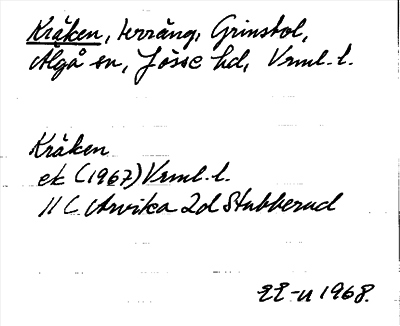 Kråken, terräng, Grinsbol,
Älgå sn, Jösse hd, Vrml. l.
Kråken
ek (1967) Vrml. l.
11 C Arvika 2d Stubberud
EE-u 1968.